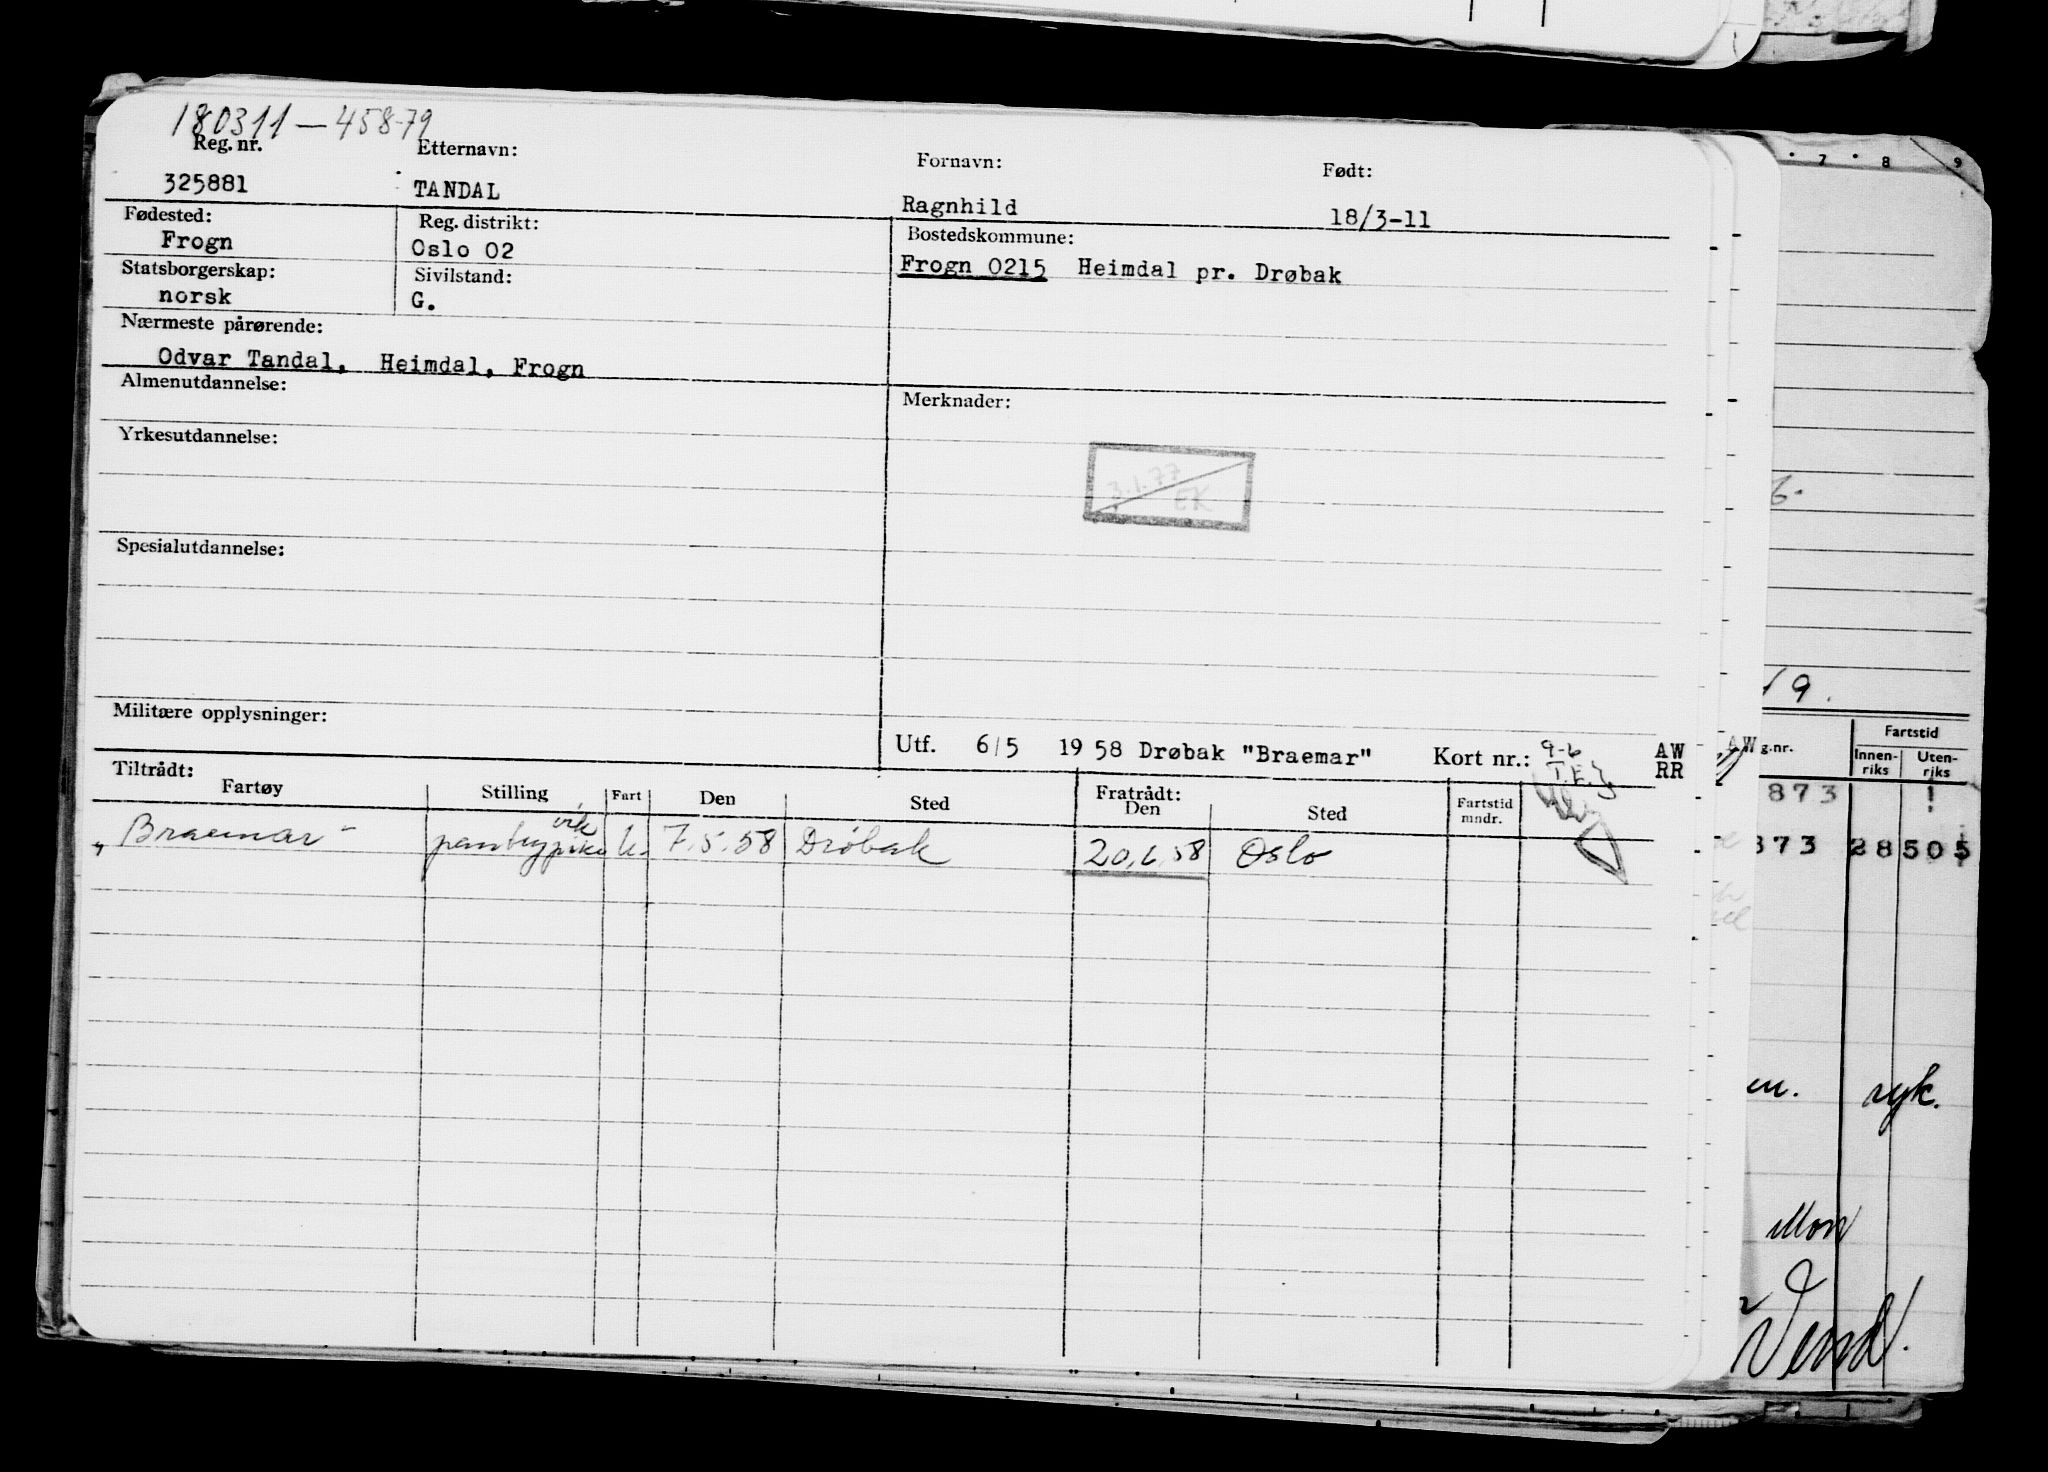 180311-45879
Reg. nr. Etternavn: Fornavn: Født:
325881 TANDAL Ragnhild 18/3-11
Fødested: Reg. distrikt: Bostedskommune:
Frogn Oslo 02 Frogn 0215 Heimdal pr. Drøbak
Statsborgerskap: Sivilstand:
norsk G.
Nærmeste pårørende:
Odvar Tandal, Heimdal, Frogn
Almenutdannelse: Merknader:
Yrkesutdannelse:
3.1.77
EK
Spesialutdannelse:
Militære opplysninger:
Utf. 6/5 1958 Drøbak "Braemar" Kort nr.: AW
RR
9-6
T.E.
Tiltrådt: Fratrådt:
Fartøy Stilling Fart Den Sted Den Sted Fartstid mndr.
"Braemar" vik
U. 7.5.58 Drøbak 20.6.58 Oslo
7 8 9
6.
19.
AW g.nr. Fartstid
Innenriks Utenriks
873
873 28 505
en. ryk.